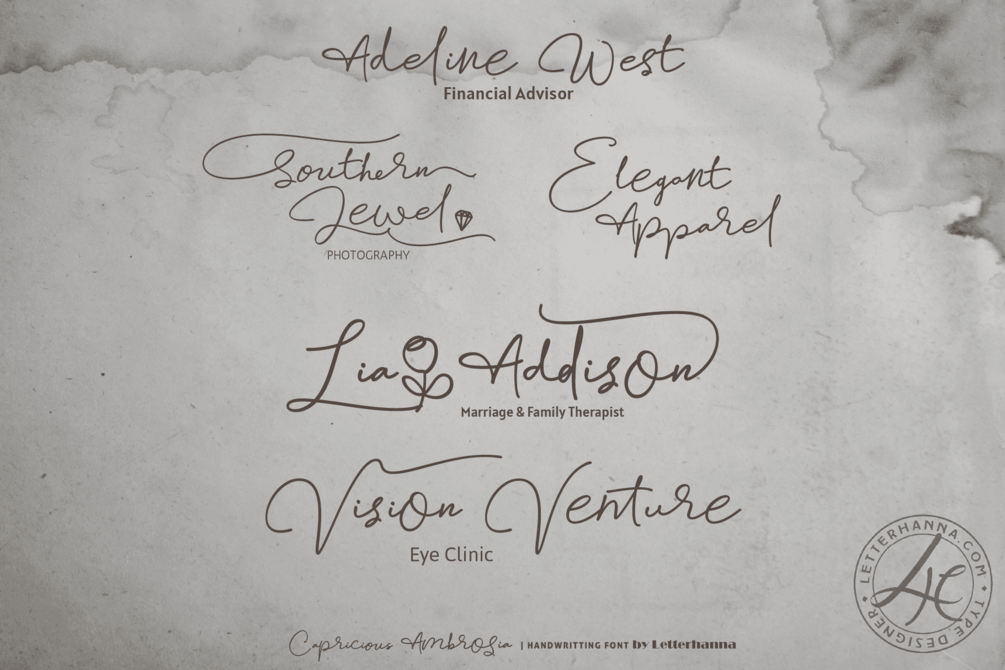 Adeline West
Financial Advisor
Southern
Jewel
PHOTOGRAPHY
Elegant
Apparel
Lia Addison
Marriage & Family Therapist
Vision Venture
Eye Clinic
LETTERHANNA.COM • TYPE DESIGNER •
LH
Capricious Ambrosia | HANDWRITTING FONT by Letterhanna